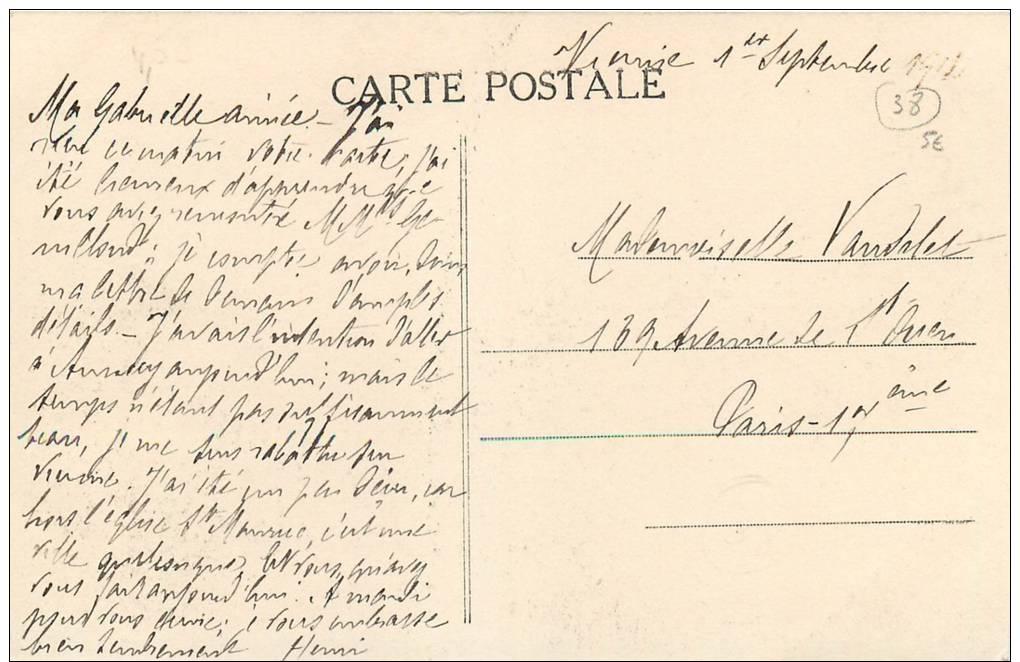 Vienne 1er Septembre
CARTE POSTALE
38
5€
Ma Gabrielle aimée - J'ai
reçu ce matin votre carte, j'ai
été heureux d'apprendre que
vous avez rencontré
je compte avoir dans
ma lettre de demain d'amples
détails. - J'avais l'intention d'aller
à Annecy aujourd'hui; mais le
temps n'étant pas suffisamment
beau, je me suis rabattu sur
Vienne. J'ai été un peu déçu, car
hors l'église St Maurice, c'est une
ville quelconque. Et vous, qu'avez
vous fait aujourd'hui. A mardi
pour vous écrire; je vous embrasse
bien tendrement Henri
Mademoiselle
139 Avenue de St Ouen
Paris - 17ème